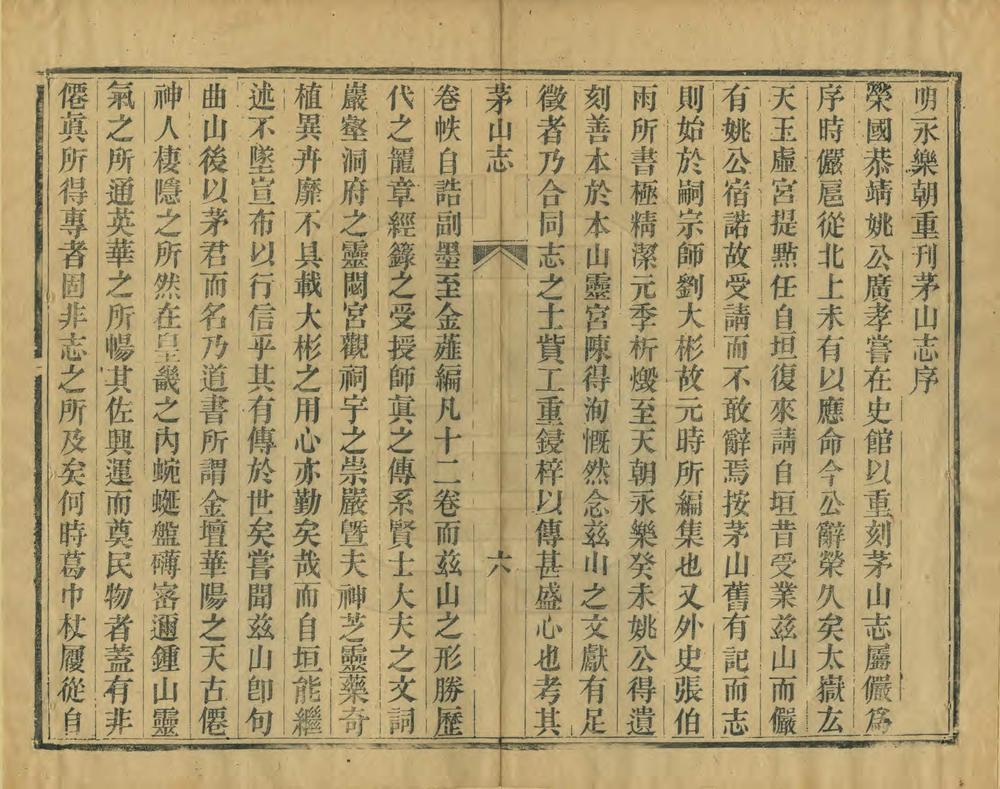 明永樂朝重刊茅山志序
榮國恭靖姚公廣孝嘗在史館以重刻茅山志屬儼爲
序時儼扈從北上未有以應命今公辭榮久矣太嶽玄
天玉虛宮提點任自垣復來請自垣昔受業兹山而儼
有姚公宿諾故受請而不敢辭焉按茅山舊有記而志
則始於嗣宗師劉大彬故元時所編集也又外史張伯
雨所書極精潔元季析燬至天朝永樂癸未姚公得遺
刻善本於本山靈官陳得洵慨然念兹山之文獻有足
徵者乃合同志之士貲工重鋟梓以傳甚盛心也考其
茅山志
六
卷帙自誥副墨至金薤編凡十二卷而兹山之形勝歷
代之寵章經籙之受授師真之傳系賢士大夫之文詞
巖壑洞府之靈閟宮觀祠宇之崇嚴曁夫神芝靈藥奇
植異卉靡不具載大彬之用心亦勤矣哉而自垣能繼
述不墜宣布以行信乎其有傳於世矣嘗聞兹山卽句
曲山後以茅君而名乃道書所謂金壇華陽之天古僊
神人棲隱之所然在皇畿之內蜿蜒盤礴密邇鍾山靈
氣之所通英華之所暢其佐興運而奠民物者蓋有非
僊眞所得專者固非志之所及矣何時葛巾杖屨從自